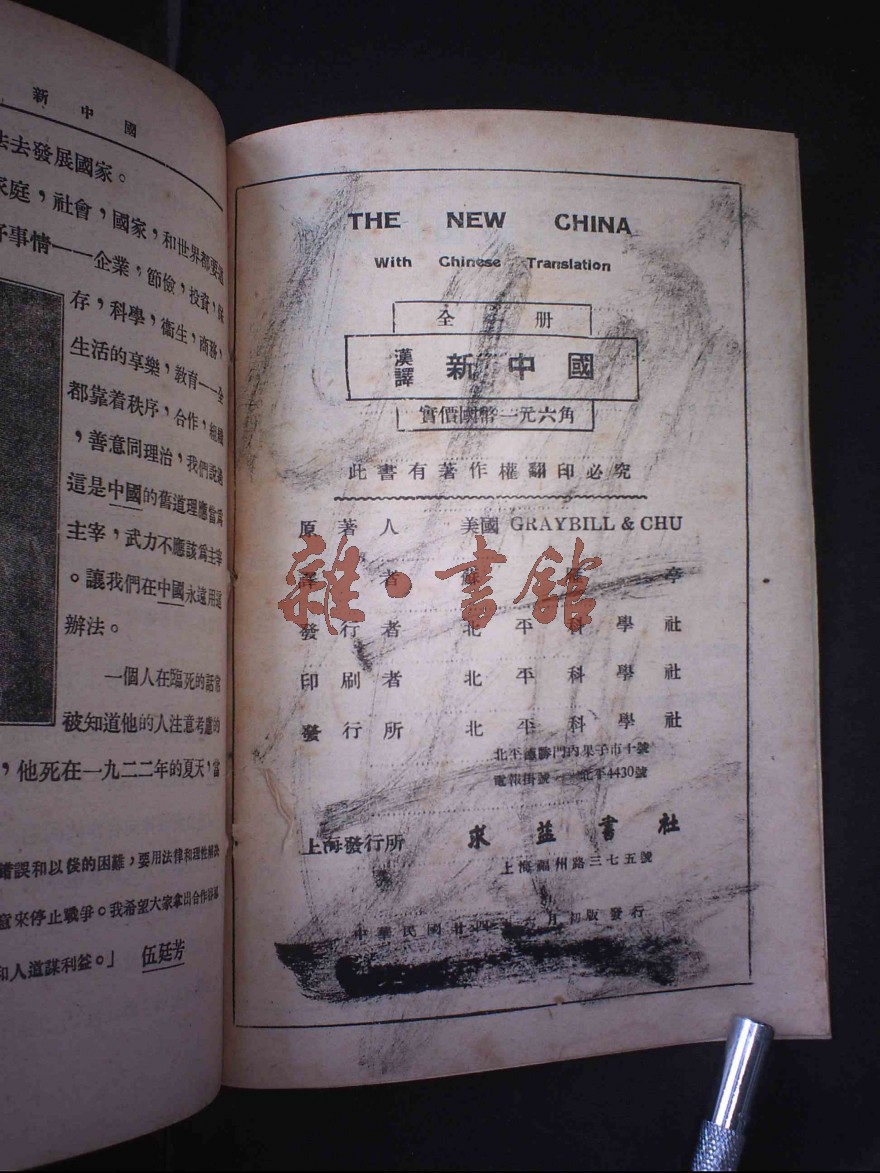 新中國
法去發展國家。
家庭，社會，國家，和世界都要
好事情——企業，節儉，投資，保
存，科學，衞生，商務，
生活的享樂，教育——全
都靠着秩序，合作，組織
，善意同理治，我們說
這是中國的舊道理應當爲
主宰，武力不應該爲主宰
。讓我們在中國永遠用這
辦法。
一個人在臨死的話常
被知道他的人注意考慮的
，他死在一九二二年的夏天，當
錯誤和以後的困難，要用法律和理性解決
意來停止戰爭。我希望大家拿出合作
和人道謀利益。」 伍廷芳
THE NEW CHINA
With Chinese Translation
全一册
漢譯 新中國
實價國幣一元六角
此書有著作權翻印必究
原著人 美國 GRAYBILL & CHU
譯者 蘇 亭
發行者 北平科學社
印刷者 北平科學社
發行所 北平科學社
北平德勝門內果子市十號
電報掛號——北平4430號
上海發行所 求益書社
上海福州路三七五號
中華民國廿四年六月初版發行
雜·書館